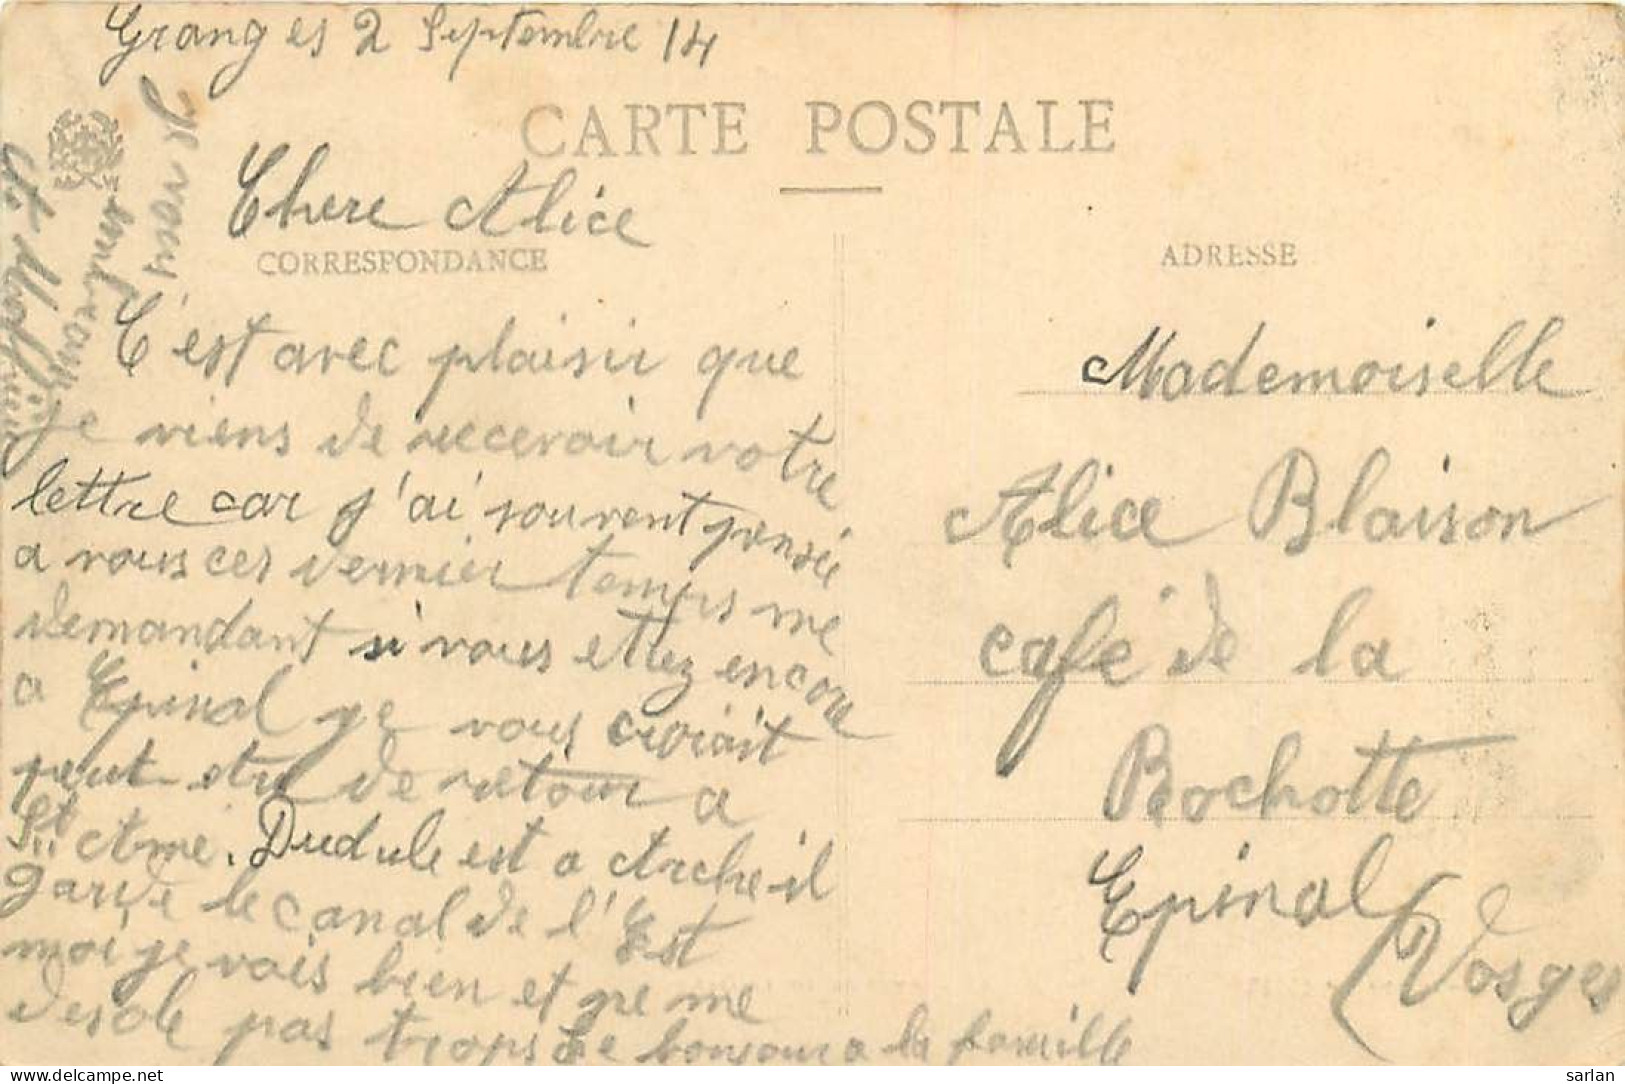 Granges 2 Septembre 14
CARTE POSTALE
Chere Alice
CORRESPONDANCE
C'est avec plaisir que
je viens de recevoir votre
lettre car j'ai souvent pensée
a vous ces dernier temps me
demandant si vous ettiez encore
a Epinal je vous croiait
peut etre de retour a
St Amé. Dudule est a Arche il
garde le canal de l'Est
moi je vais bien et ne me
desole pas trops Le bonjour a la famille
ADRESSE
Mademoiselle
Alice Blaison
café de la
Rochotte
Epinal
(Vosges
sarlan